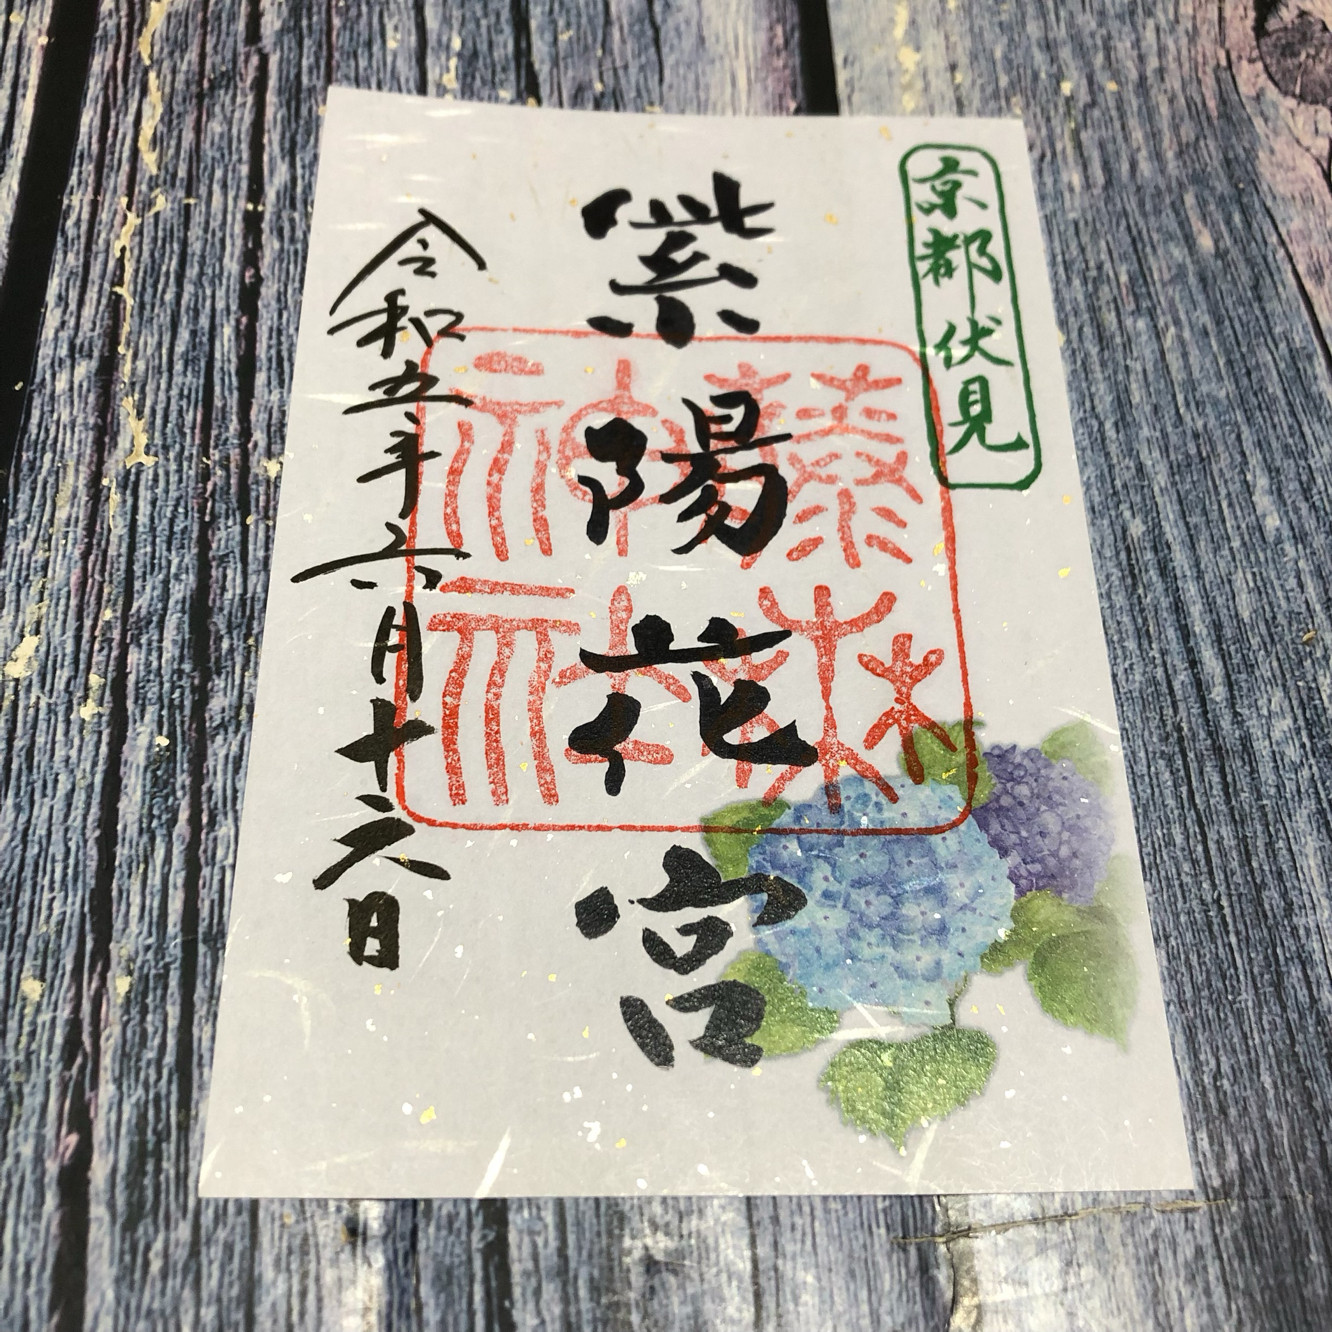 京都伏見
紫陽花宮
藤森神社
令和五年六月十六日